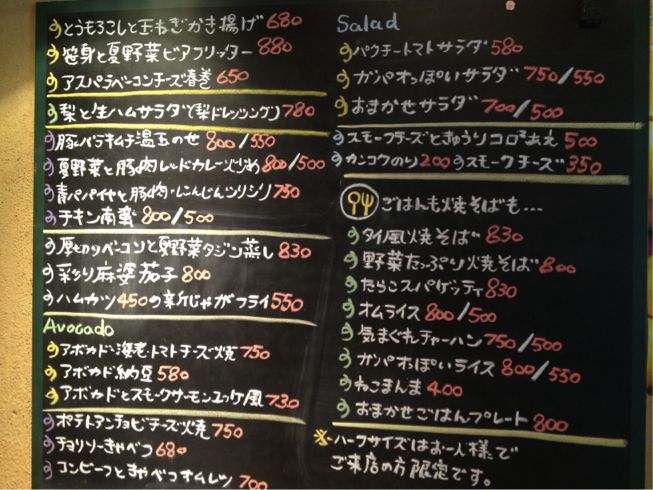 とうもろこしと玉ねぎかき揚げ 680
笹身と夏野菜ビアフリッター 880
アスパラベーコンチーズ春巻 650
梨と生ハムサラダ(梨ドレッシング) 780
豚バラキムチ温玉のせ 800/550
夏野菜と豚肉レッドカレー炒め 800/500
青パパイヤと豚肉・にんじんシリシリ 750
チキン南蛮 800/500
厚切りベーコンと夏野菜タジン蒸し 830
彩り麻婆茄子 800
ハムカツ 450 の新じゃがフライ 550
Avocado
アボカド・海老・トマトチーズ焼 750
アボカド納豆 580
アボカドとスモークサーモンユッケ風 730
ポテトアンチョビチーズ焼 750
チョリソーきゃべつ 680
コンビーフときゃべつオムレツ 700
Salad
パクチートマトサラダ 580
ガパオっぽいサラダ 750/550
おまかせサラダ 700/500
スモークチーズときゅうりコロコロあえ 500
カンコクのり 200 スモークチーズ 350
ごはんも焼そばも...
タイ風焼そば 830
野菜たっぷり焼そば 800
たらこスパゲッティ 830
オムライス 800/500
気まぐれチャーハン 750/500
ガパオっぽいライス 800/550
ねこまんま 400
おまかせごはんプレート 800
※ハーフサイズはお一人様で
ご来店の方限定です。